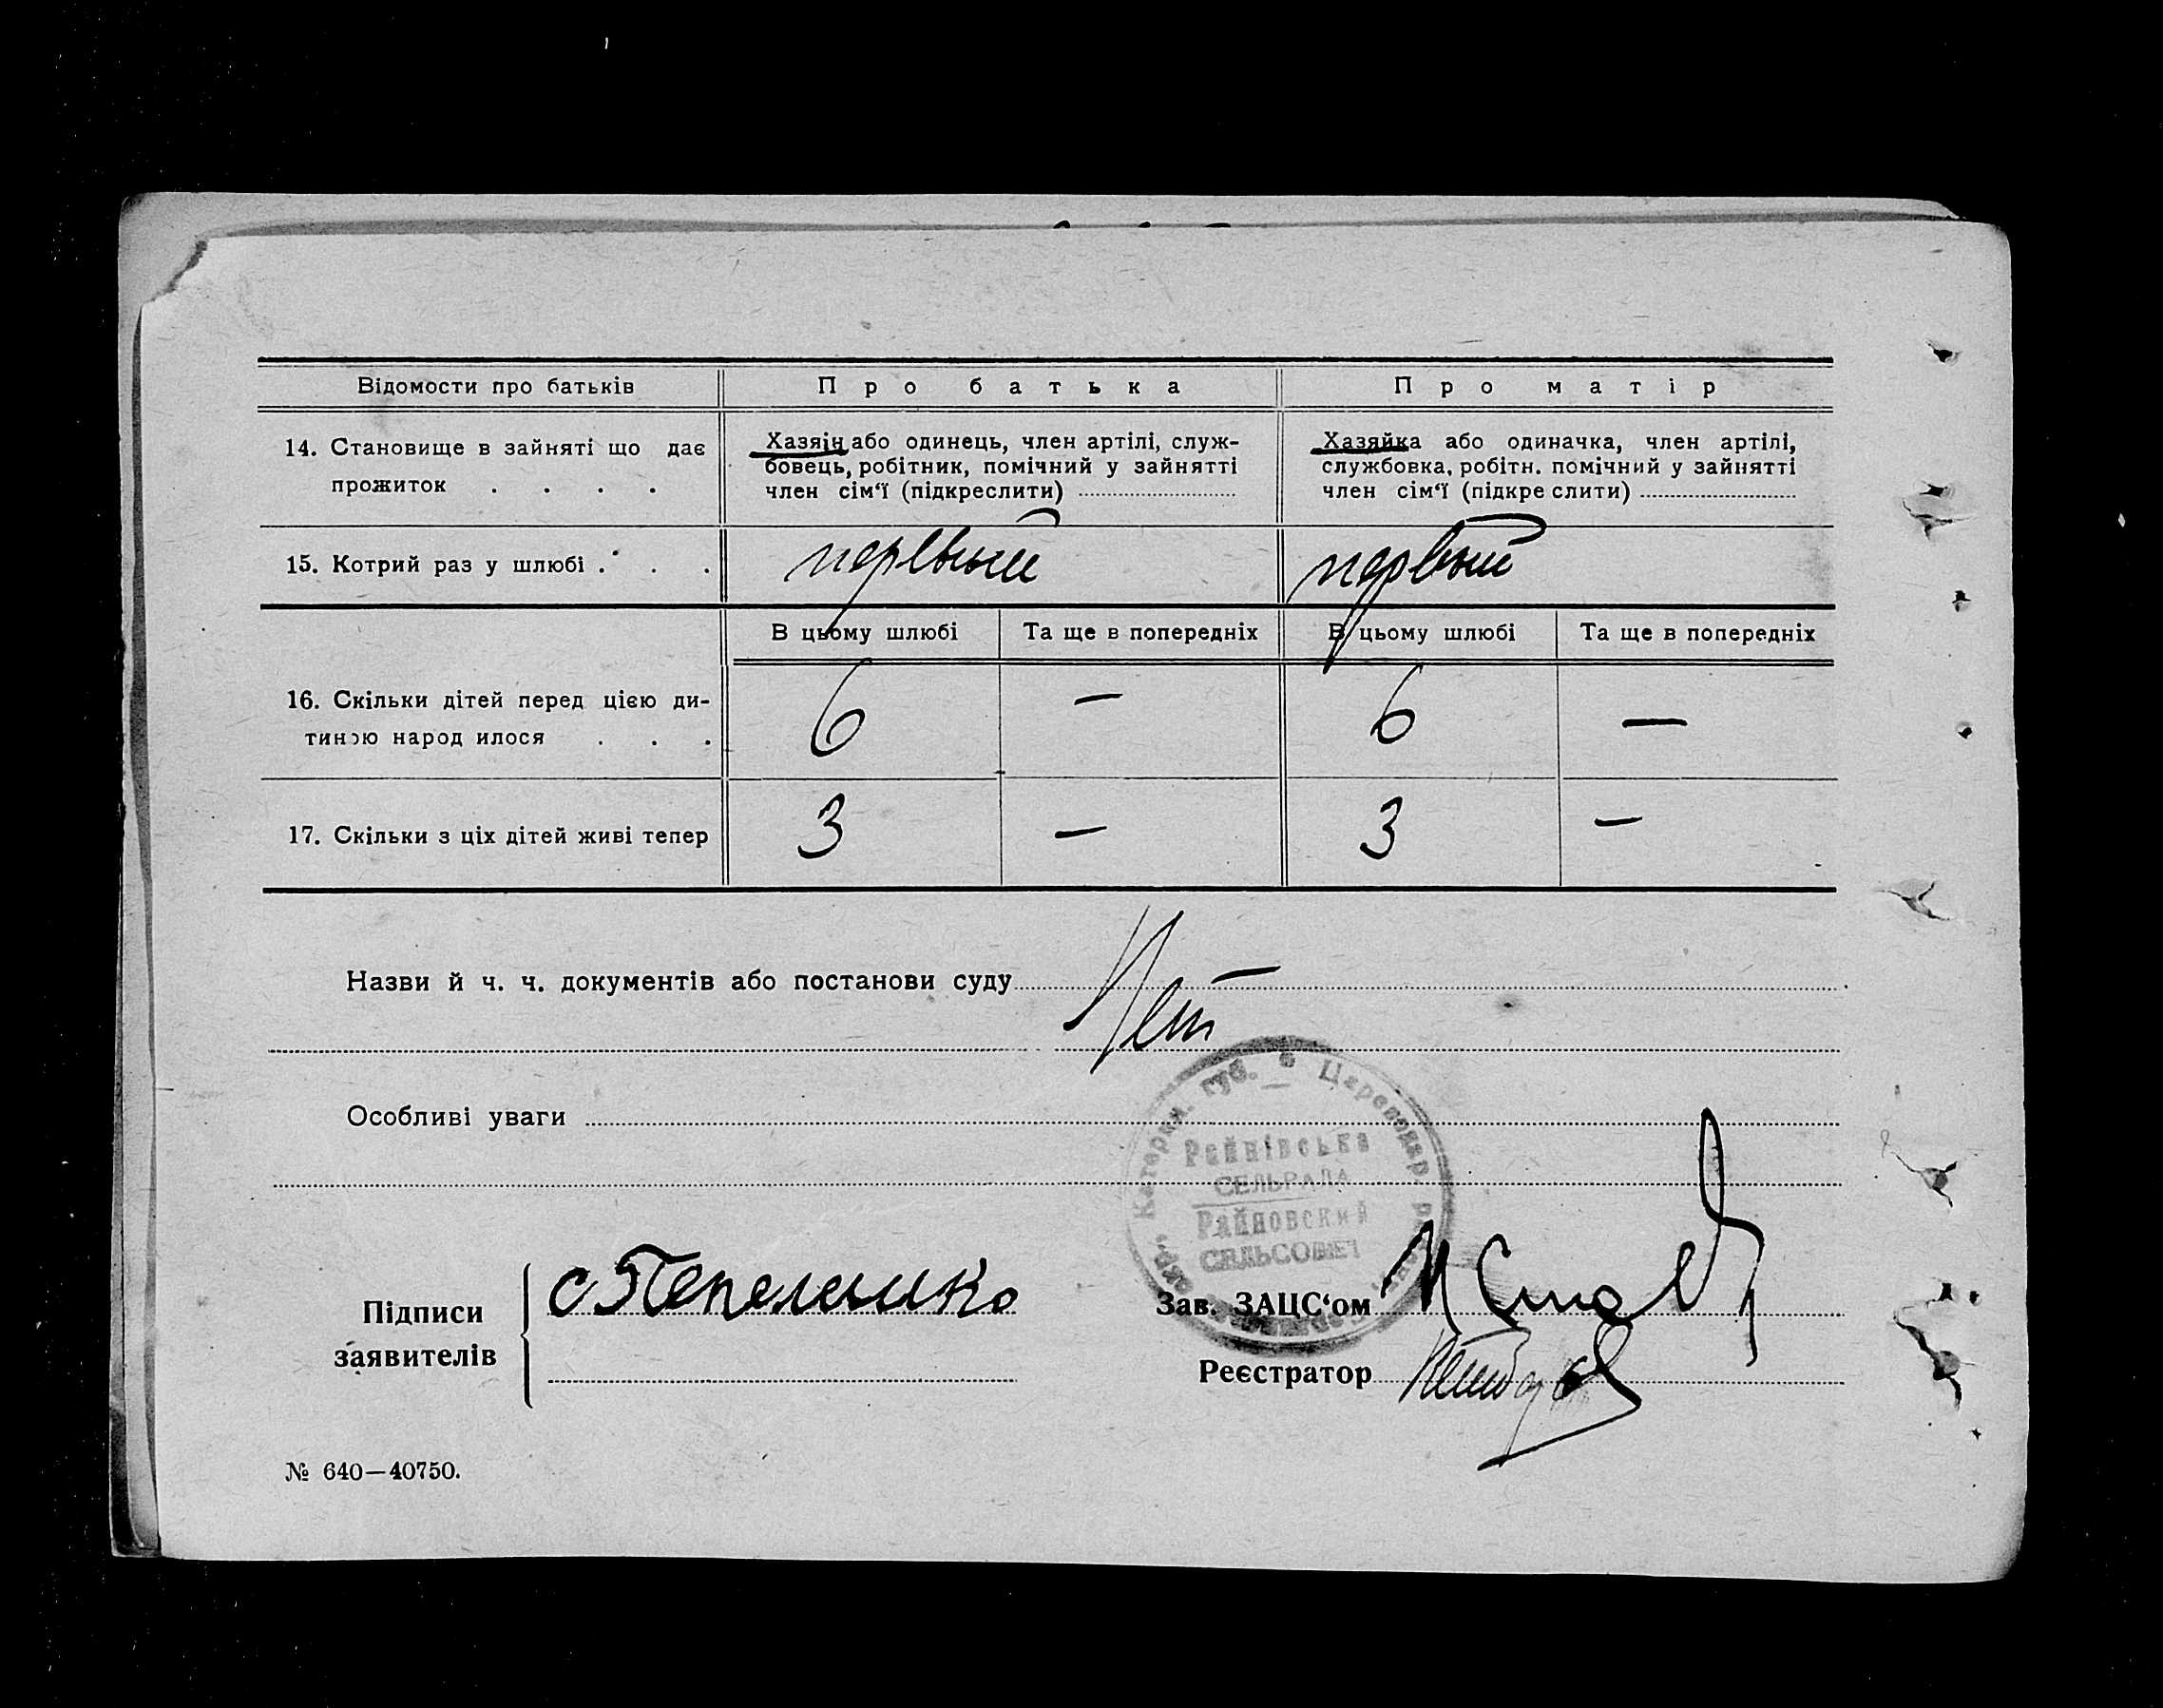 Відомости про батьків
Про батька
Про матір
14. Становище в зайняті що дає
прожиток . . . .
Хазяін або одинець, член артілі, служ-
бовець, робітник, помічний у зайнятті
член сім‘ї (підкреслити)
Хазяйка або одиначка, член артілі,
службовка, робітн. помічний у зайнятті
член сім‘ї (підкре слити)
15. Котрий раз у шлюбі . . .
первый
первый
В цьому шлюбі
Та ще в попередніх
В цьому шлюбі
Та ще в попередніх
16. Скільки дітей перед цією ди-
тиною народ илося . . .
6
—
6
—
17. Скільки з ціх дітей живі тепер
3
—
3
—
Назви й ч. ч. документів або постанови суду
Нет
Особливі уваги
Катерин. губ.
Райнівська
СЕЛЬРАДА
Райновский
СЕЛЬСОВЕТ
Підписи
заявителів
Зав. ЗАЦС‘ом
Реєстратор
№ 640—40750.